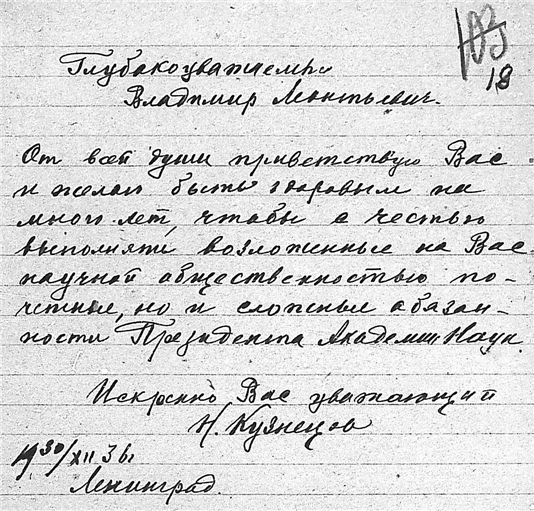 18
Глубокоуважаемый
Владимир Леонтьевич.
От всей души приветствую Вас
и желаю быть здоровым на
много лет, чтобы с честью
выполнять возложенные на Вас
научной общественностью по-
четные, но и сложные обязан-
ности Президента Академии Наук.
Искренно Вас уважающий
Н. Кузнецов
19 30/XII 36.
Ленинград.